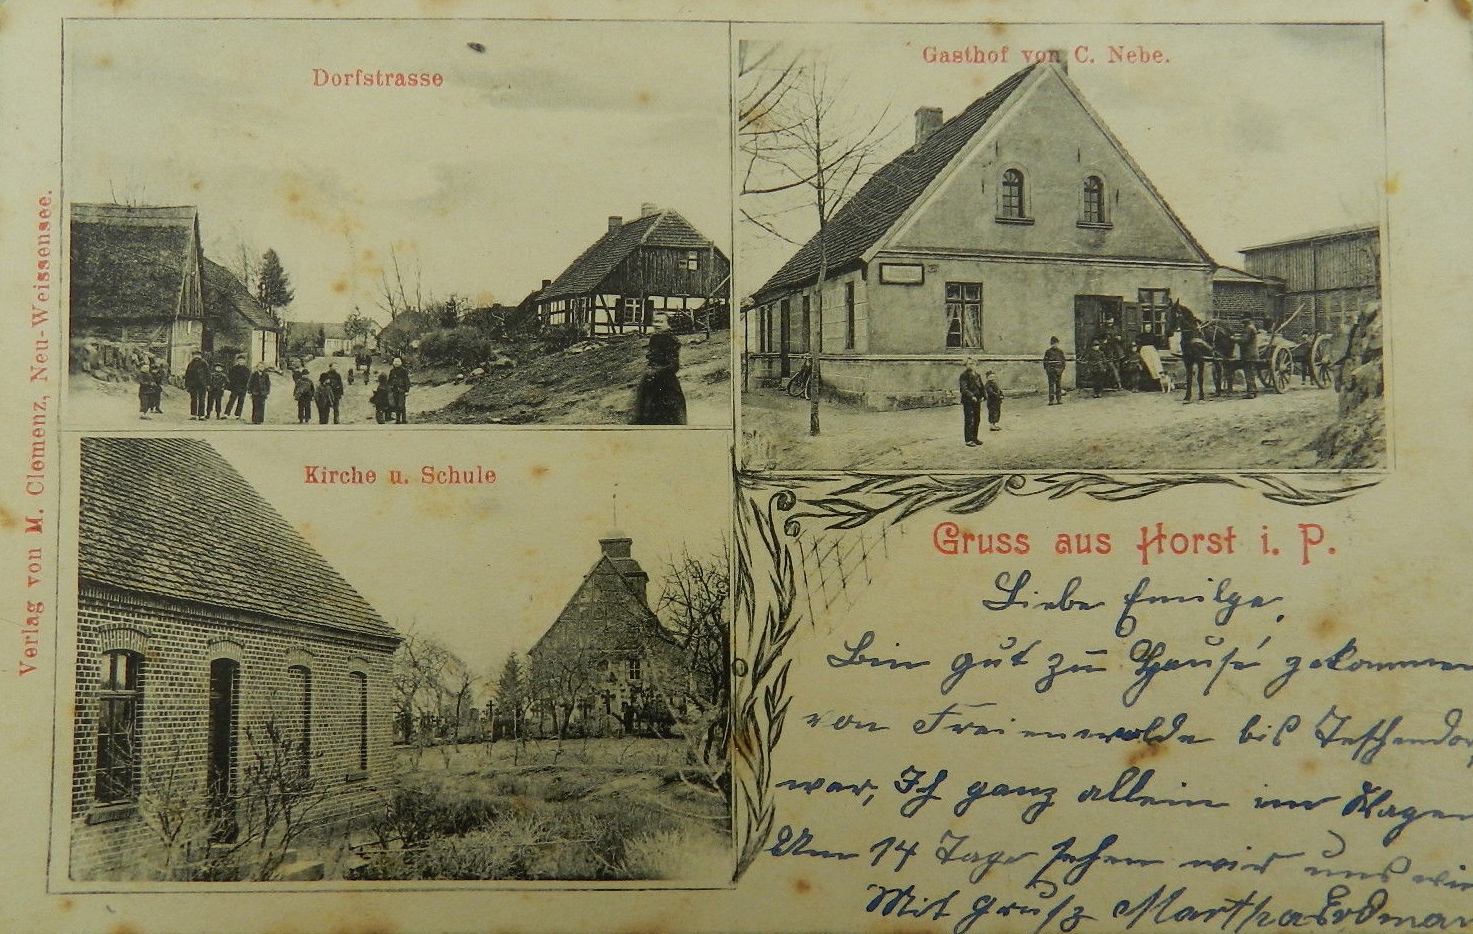 Dorfstrasse
Gasthof von C. Nebe.
Kirche u. Schule
Verlag von M. Clemenz, Neu-Weissensee.
Gruss aus Horst i. P.
Liebe
Bin gut zu Hause gekommen
von Freienwalde bis
war, Ich ganz allein im Wagen
Um 14 Tage sehen wir uns
Mit Gruß Martha